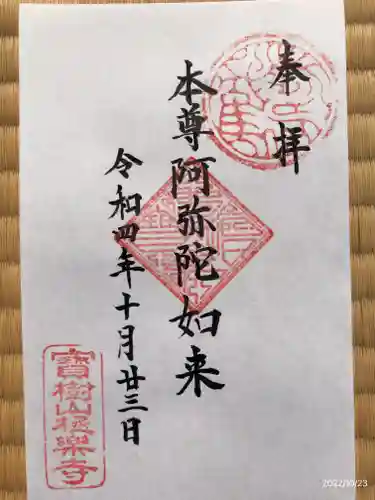 奉拝
本尊阿弥陀如来
令和四年十月廿三日
寳樹山極樂寺
2022/10/23